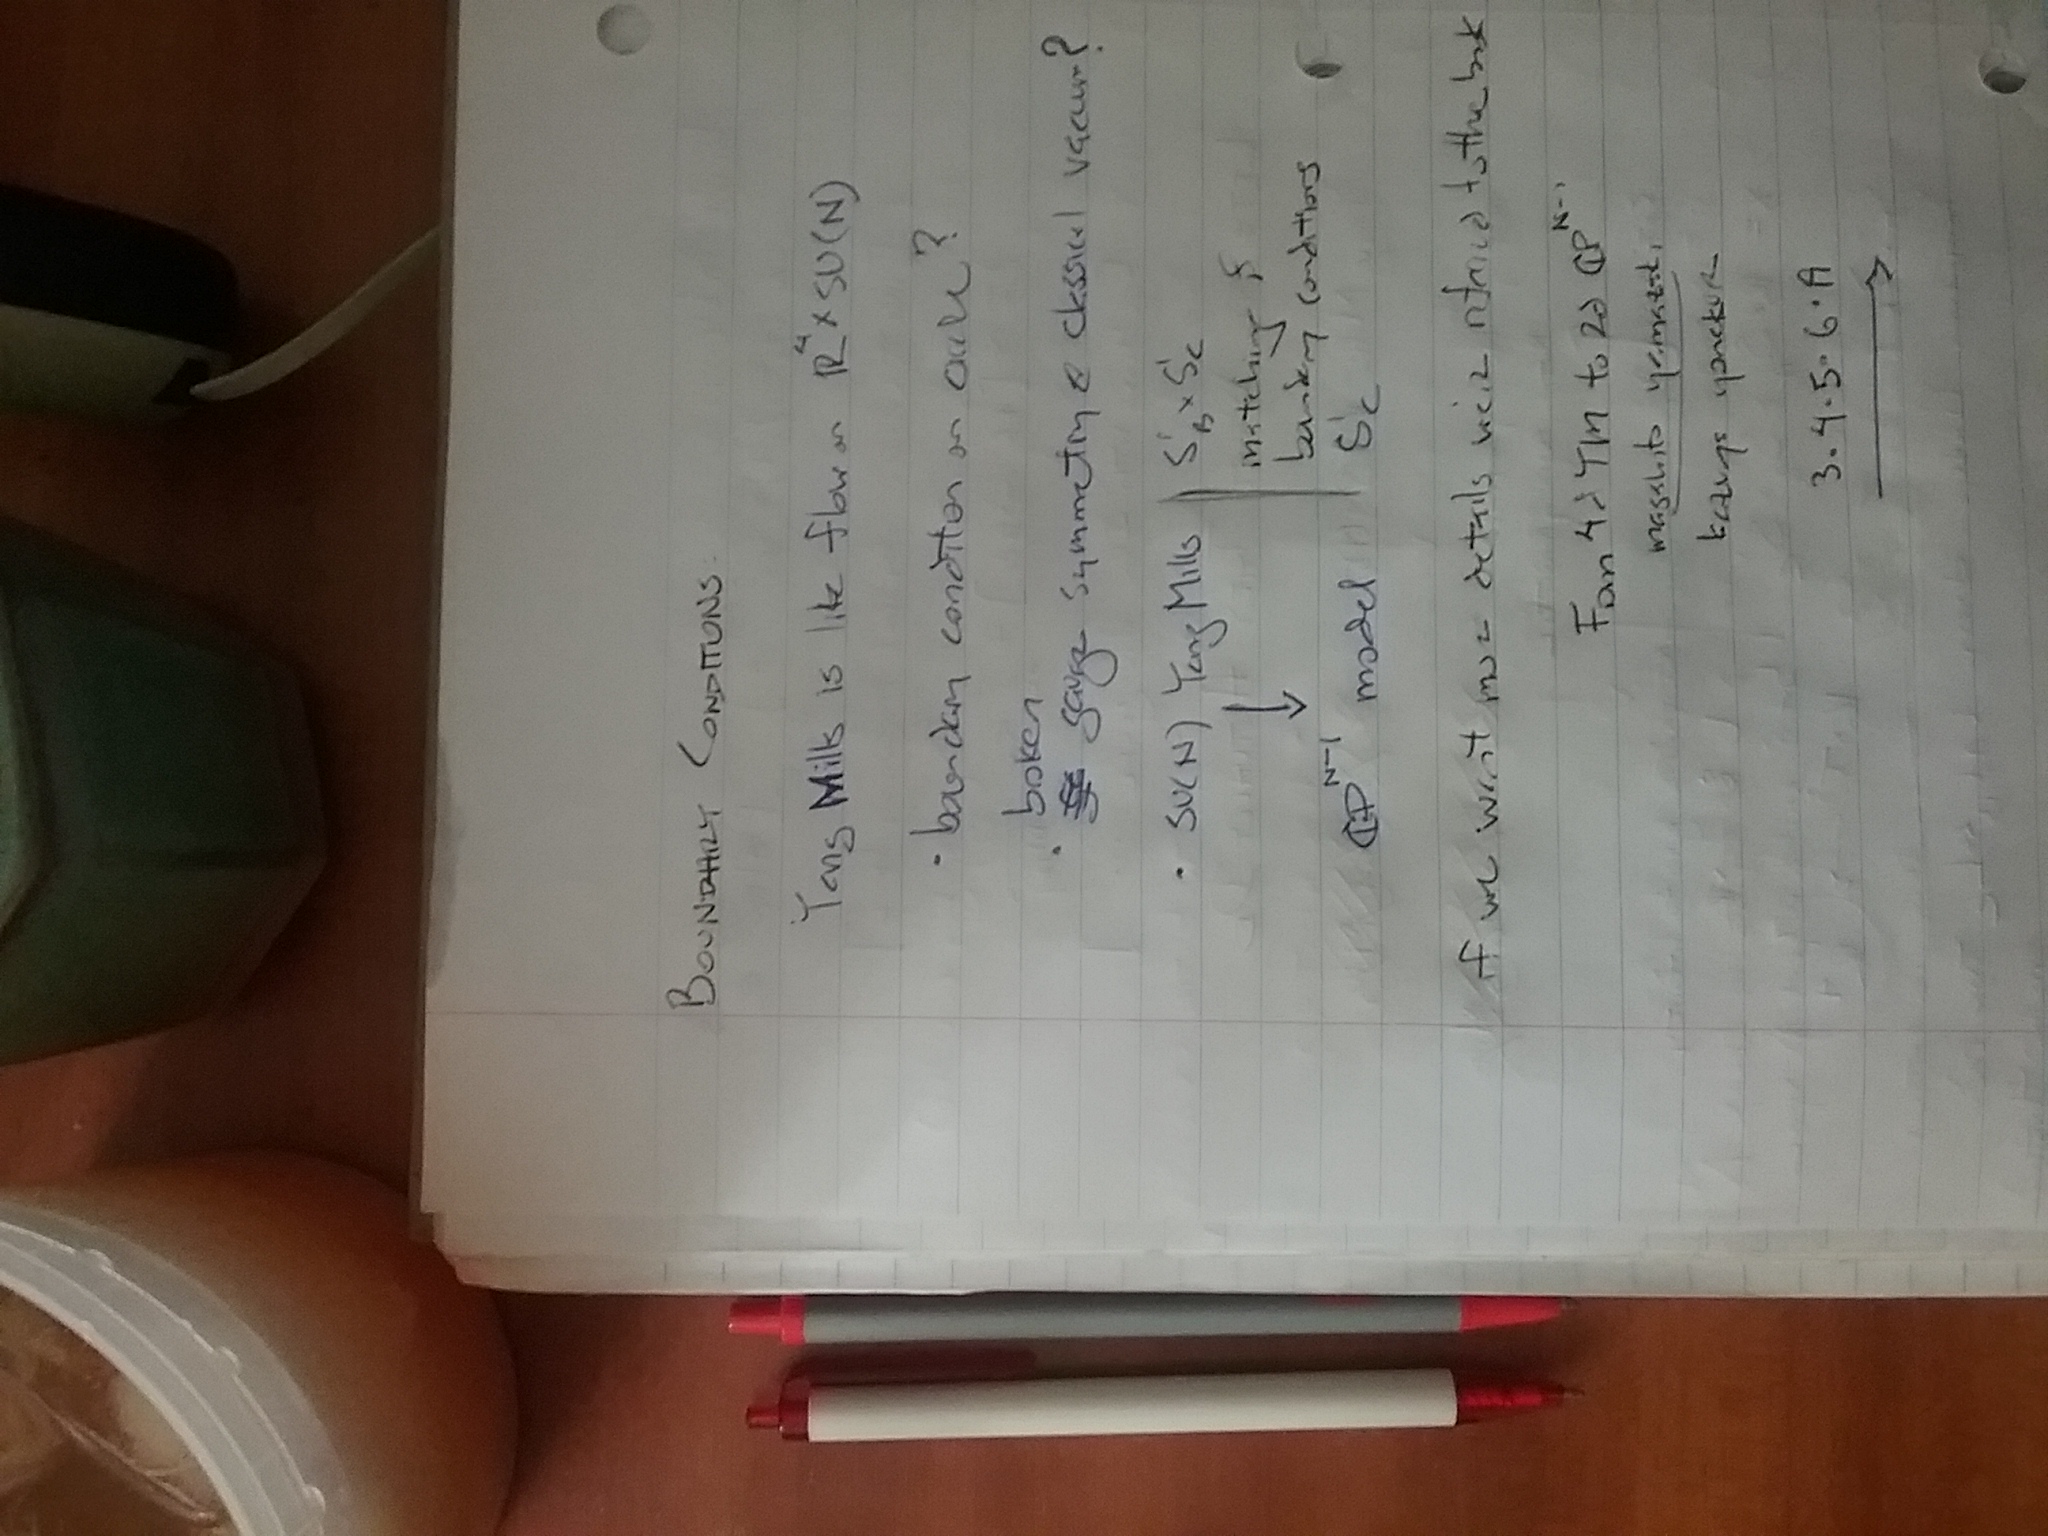 BOUNDARY CONDITIONS
Yang Mills is like flow on ℝ⁴ × SU(N)
· boundary condition on circle?
broken
· gauge symmetry & classical vacuum?
· SU(N) Yang Mills | S¹_B × S¹_C
matching &
boundary conditions
ℂP^{N-1} model S¹_C
if we want more details we're referred to the book
From 4d YM to 2d ℂP^{N-1}
masahito yamazaki
kazuya yonekura
3·4·5·6·A